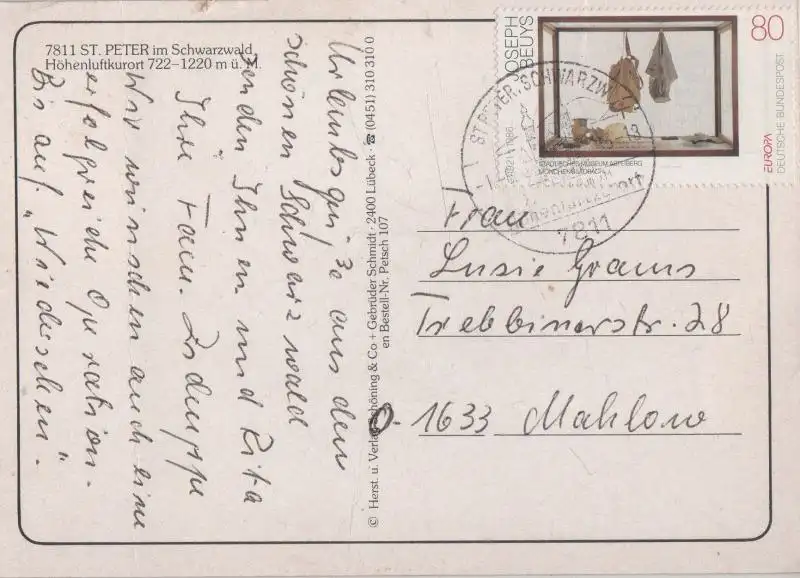 7811 ST. PETER im Schwarzwald
Höhenluftkurort 722–1220 m ü. M.
Urlaubsgrüße aus dem
schönen Schwarzwald
senden Ihnen und Rita
Ihre Fam.
Wir wünschen auch eine
erfolgreiche Operation.
Bis auf „Wiedersehen".
© Herst. u. Verlag Schöning & Co + Gebrüder Schmidt · 2400 Lübeck · ☎ (0451) 310 310 0
en Bestell-Nr. Petsch 107
JOSEPH
BEUYS
1921-1986
80
STÄDTISCHES MUSEUM ABTEIBERG
MÖNCHENGLADBACH
EUROPA
DEUTSCHE BUNDESPOST
ST. PETER, SCHWARZW
7811
Frau
Lusie Grams
Trebbinerstr. 28
O-1633 Mahlow